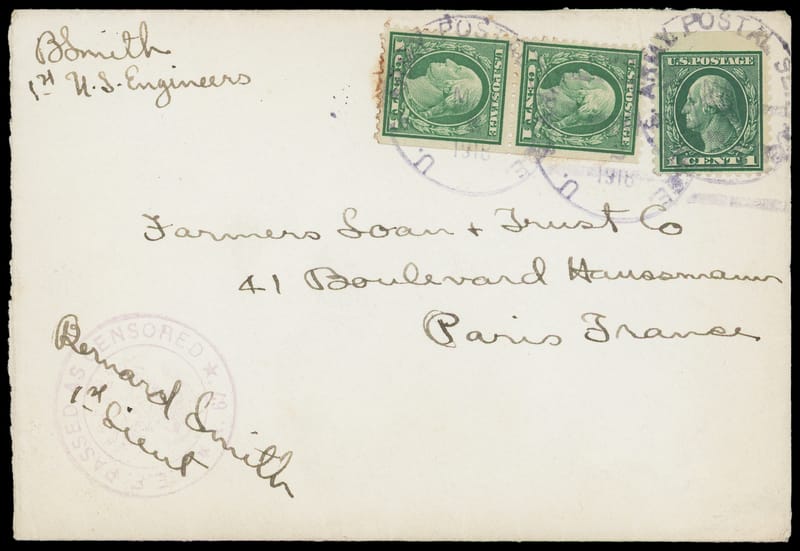 BSmith
1st U.S. Engineers
U.S. POSTAGE
1 CENT 1
U.S. POSTAGE
1 CENT 1
U.S. POSTAGE
1 CENT 1
ARMY POSTAL
1918
1918
Farmers Loan + Trust Co
41 Boulevard Haussmann
Paris France
PASSED AS CENSORED
Bernard Smith
1st Lieut